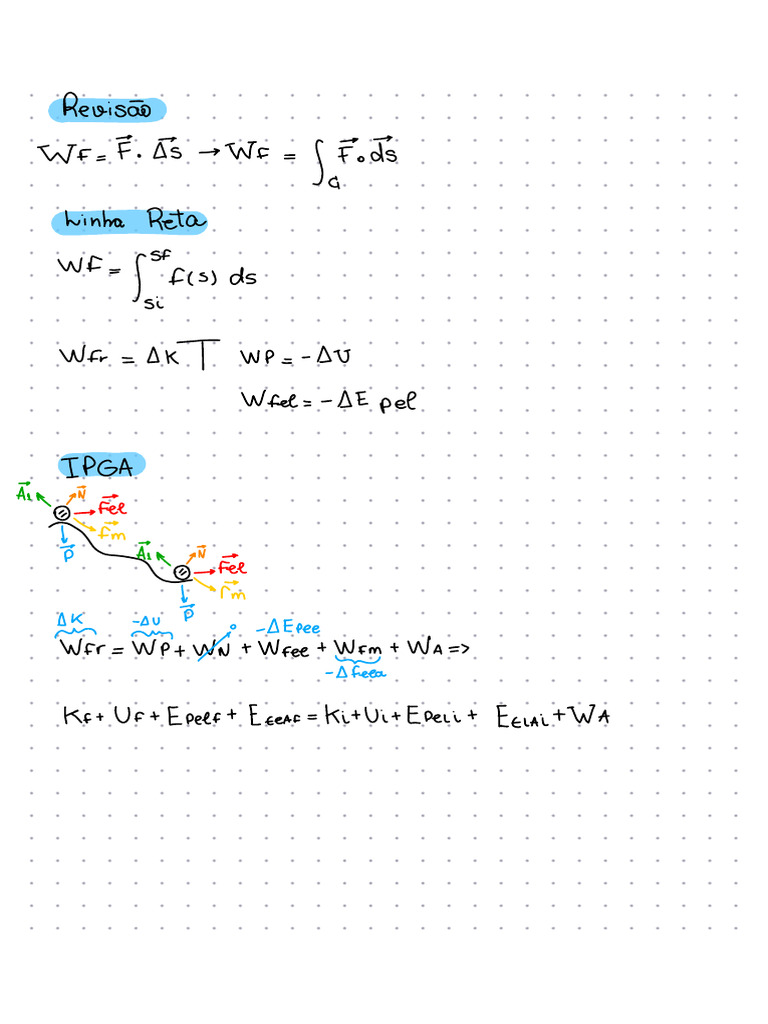 Revisão
WF = F⃗ . Δs⃗ → WF = ∫_G F⃗ . ds⃗
Linha Reta
WF = ∫_si^sf f(s) ds
Wfr = ΔK WP = -ΔU
Wfel = -ΔE pel
IPGA
A⃗1 N⃗ F⃗el f⃗m P⃗
A⃗1 N⃗ F⃗el f⃗m P⃗
ΔK -ΔU 0 -ΔEpee
Wfr = WP + WN + Wfee + Wfm + WA =>
-Δfeea
Kf + Uf + Epelf + EeeAf = Ki + Ui + EpeLi + EELAi + WA